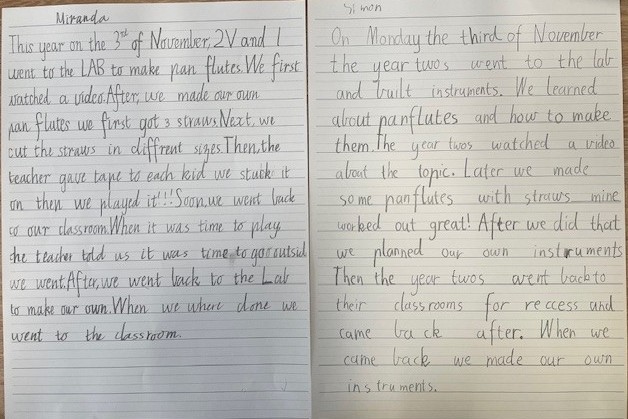 Miranda
This year on the 3rd of November, 2V and I
went to the LAB to make pan flutes. We first
watched a video. After, we made our own
pan flutes we first got 3 straws. Next, we
cut the straws in diffrent sizes. Then, the
teacher gave tape to each kid we stuck it
on then we played it!!! Soon, we went back
to our classroom. When it was time to play
the teacher told us it was time to go outsid
we went. After, we went back to the Lab
to make our own. When we where done we
went to the classroom.
Simon
On Monday the third of November
the year twos went to the lab
and built instruments. We learned
about panflutes and how to make
them. The year twos watched a video
about the topic. Later we made
some panflutes with straws mine
worked out great! After we did that
we planned our own instruments
Then the year twos went back to
their classrooms for reccess and
came back after. When we
came back we made our own
instruments.